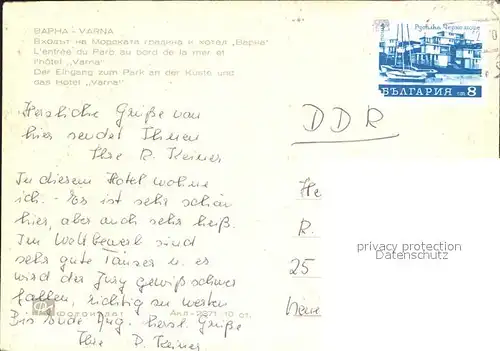 ВАРНА - VARNA
Входът на Морската градина и хотел „Варна“
L'entrée du Parc au bord de la mer et
l'hôtel „Varna“
Der Eingang zum Park an der Küste und
das Hotel „Varna“
Русалка, Черно море
БЪЛГАРИЯ ст. 8
Herzliche Grüße von
hier sendet Ihnen
Ihre R. Keiner
DDR
In diesem Hotel wohne
ich. - Es ist sehr schön
hier, aber auch sehr heiß.
Im Wettbewerb sind
sehr gute Tänzer u. es
wird der Jury gewiß schwer
fallen, richtig zu werten
Bis Ende Aug. herzl. Grüße
Ihre Keiner
He
R.
25
privacy protection
www.ansichtskartenversand.com
ФОТОИЗДАТ Акл-2371 10 ст.